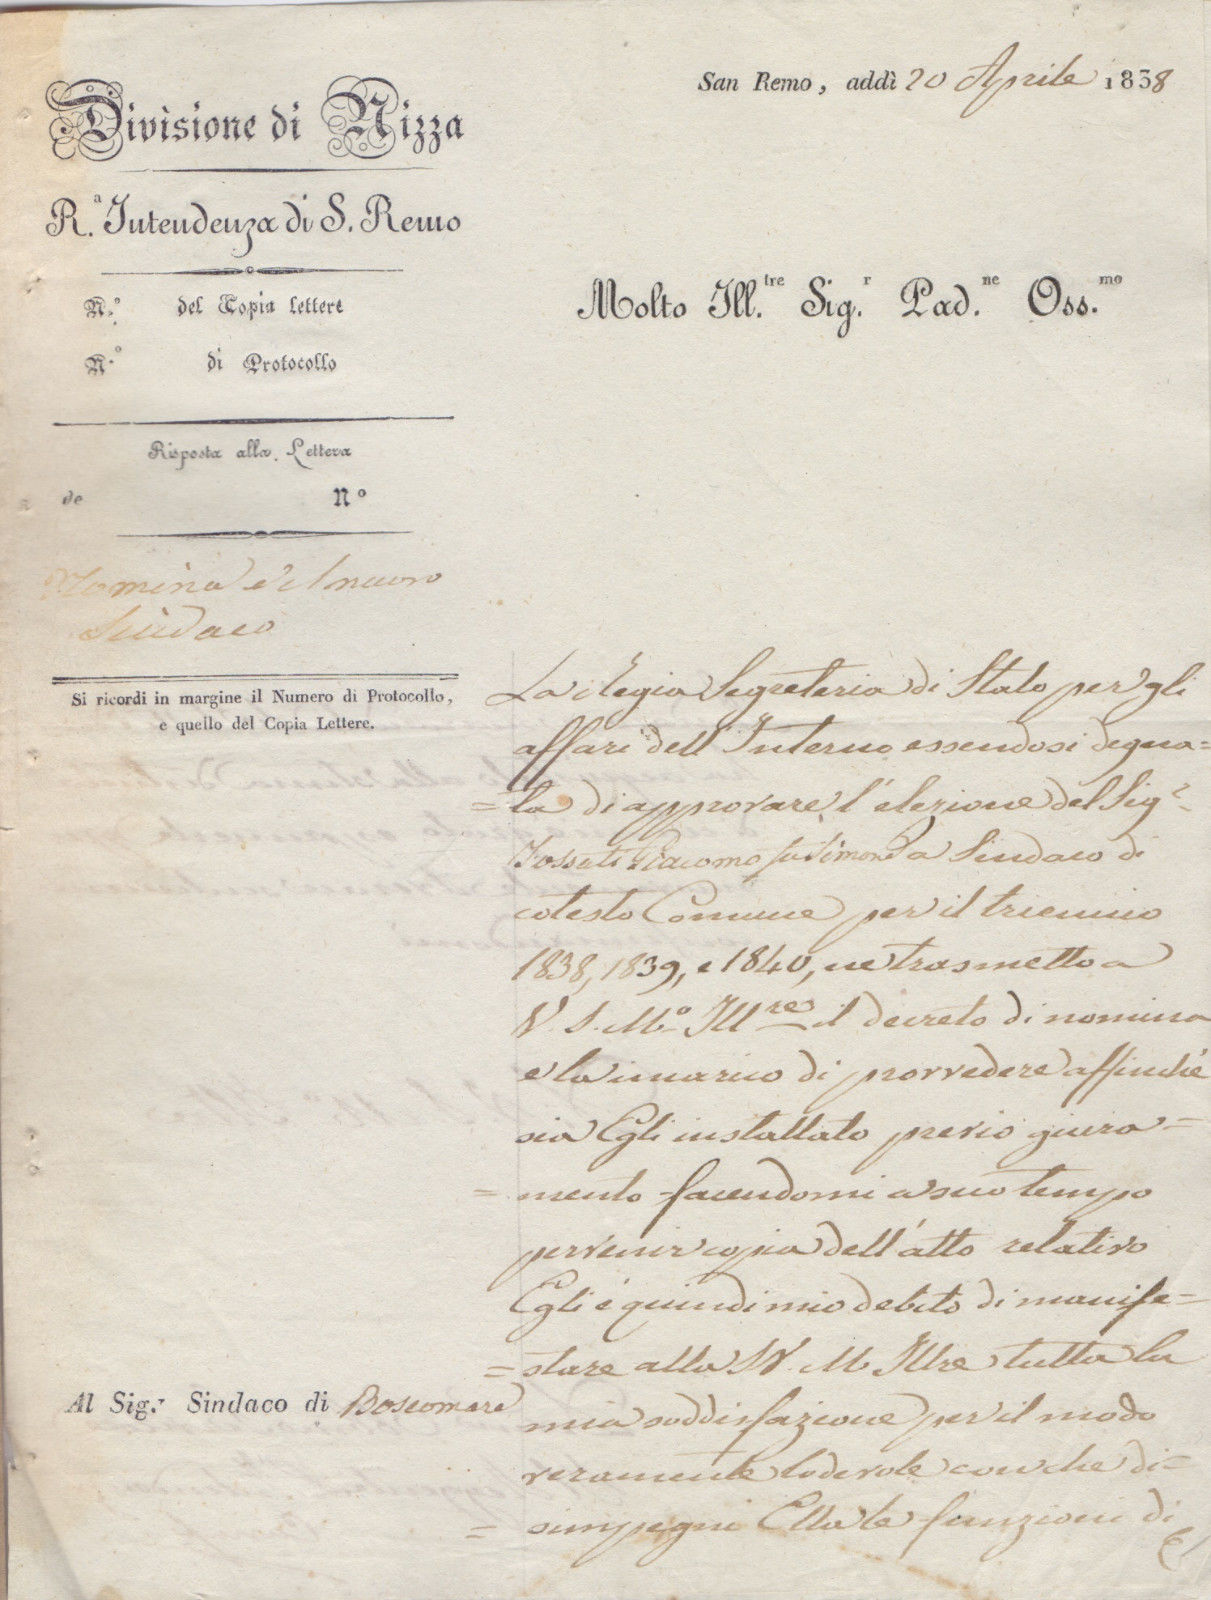 San Remo, addì 20 Aprile 1838
Divisione di Nizza
R.a Intendenza di S. Remo
N.o del Copia lettere
N.o di Protocollo
Risposta alla Lettera
de No
Nomina d'Nuovo
Sindaco
Si ricordi in margine il Numero di Protocollo,
e quello del Copia Lettere.
Molto Ill.tre Sig.r Pad.ne Oss.mo
La Regia Segreteria di Stato per gli
affari dell'Interno essendosi degna=
=ta di approvare l'elezione del Sig.r
Fossati Giacomo fu Simone a Sindaco di
cotesto Comune per il triennio
1838, 1839, e 1840, ne trasmetto a
V. S. M.o Ill.re il decreto di nomina
e la incarico di provvedere affinchè
sia Egli installato previo giura=
=mento facendomi a suo tempo
pervenir copia dell'atto relativo
Egli è quindi mio debito di manife=
=stare alla S V. M. Illre tutta la
mia soddisfazione per il modo
veramente lodevole con che di=
=simpegni Ella le funzioni di
Al Sig.r Sindaco di Boscomare